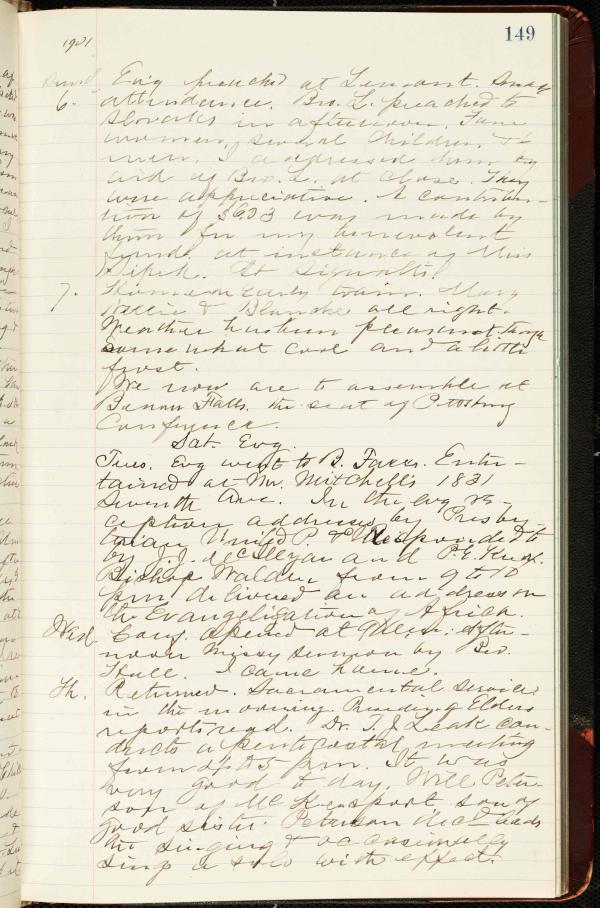 149
1901
Evg preached at Lemont. Small
6. attendance. Bro. L. preached to
Slovaks in afternoon. Four
women, several children,
men. I addressed them by
aid of Bro. L. at close. They
were appreciative. A contribu-
tion of $6.73 was made by
them for my benevolent
funds, at instance of Miss
7. Home on early train. Mary
& Blanche all right.
Weather has been pleasant though
somewhat cool and a little
frost.
We now are to assemble at
Beaver Falls, the seat of Pittsburg
Conference.
Sat. Evg.
Tues. Evg went to B. Falls. Enter-
tained at Mr. Mitchells 1821
Seventh Ave. In the evg re-
ception addresses by Presby
terian United P. & Responded to
by T. J. and P. E.
Bishop Walden from 9 to 10
pm delivered an address on
the Evangelization of Africa.
Wed. Conf. opened at After-
noon Missy sermon by Bro.
Hull. I came home.
Th. Returned. Sacramental service
in the morning. Presiding Elders
reports read. Dr. T. J. Leak con-
ducts a pentecostal meeting
from 4 to 5 pm. It was
very good to day. Will Peter-
son of McKeesport son of
good sister Peterson dec'd leads
the singing & occasionally
sings a solo with effect.